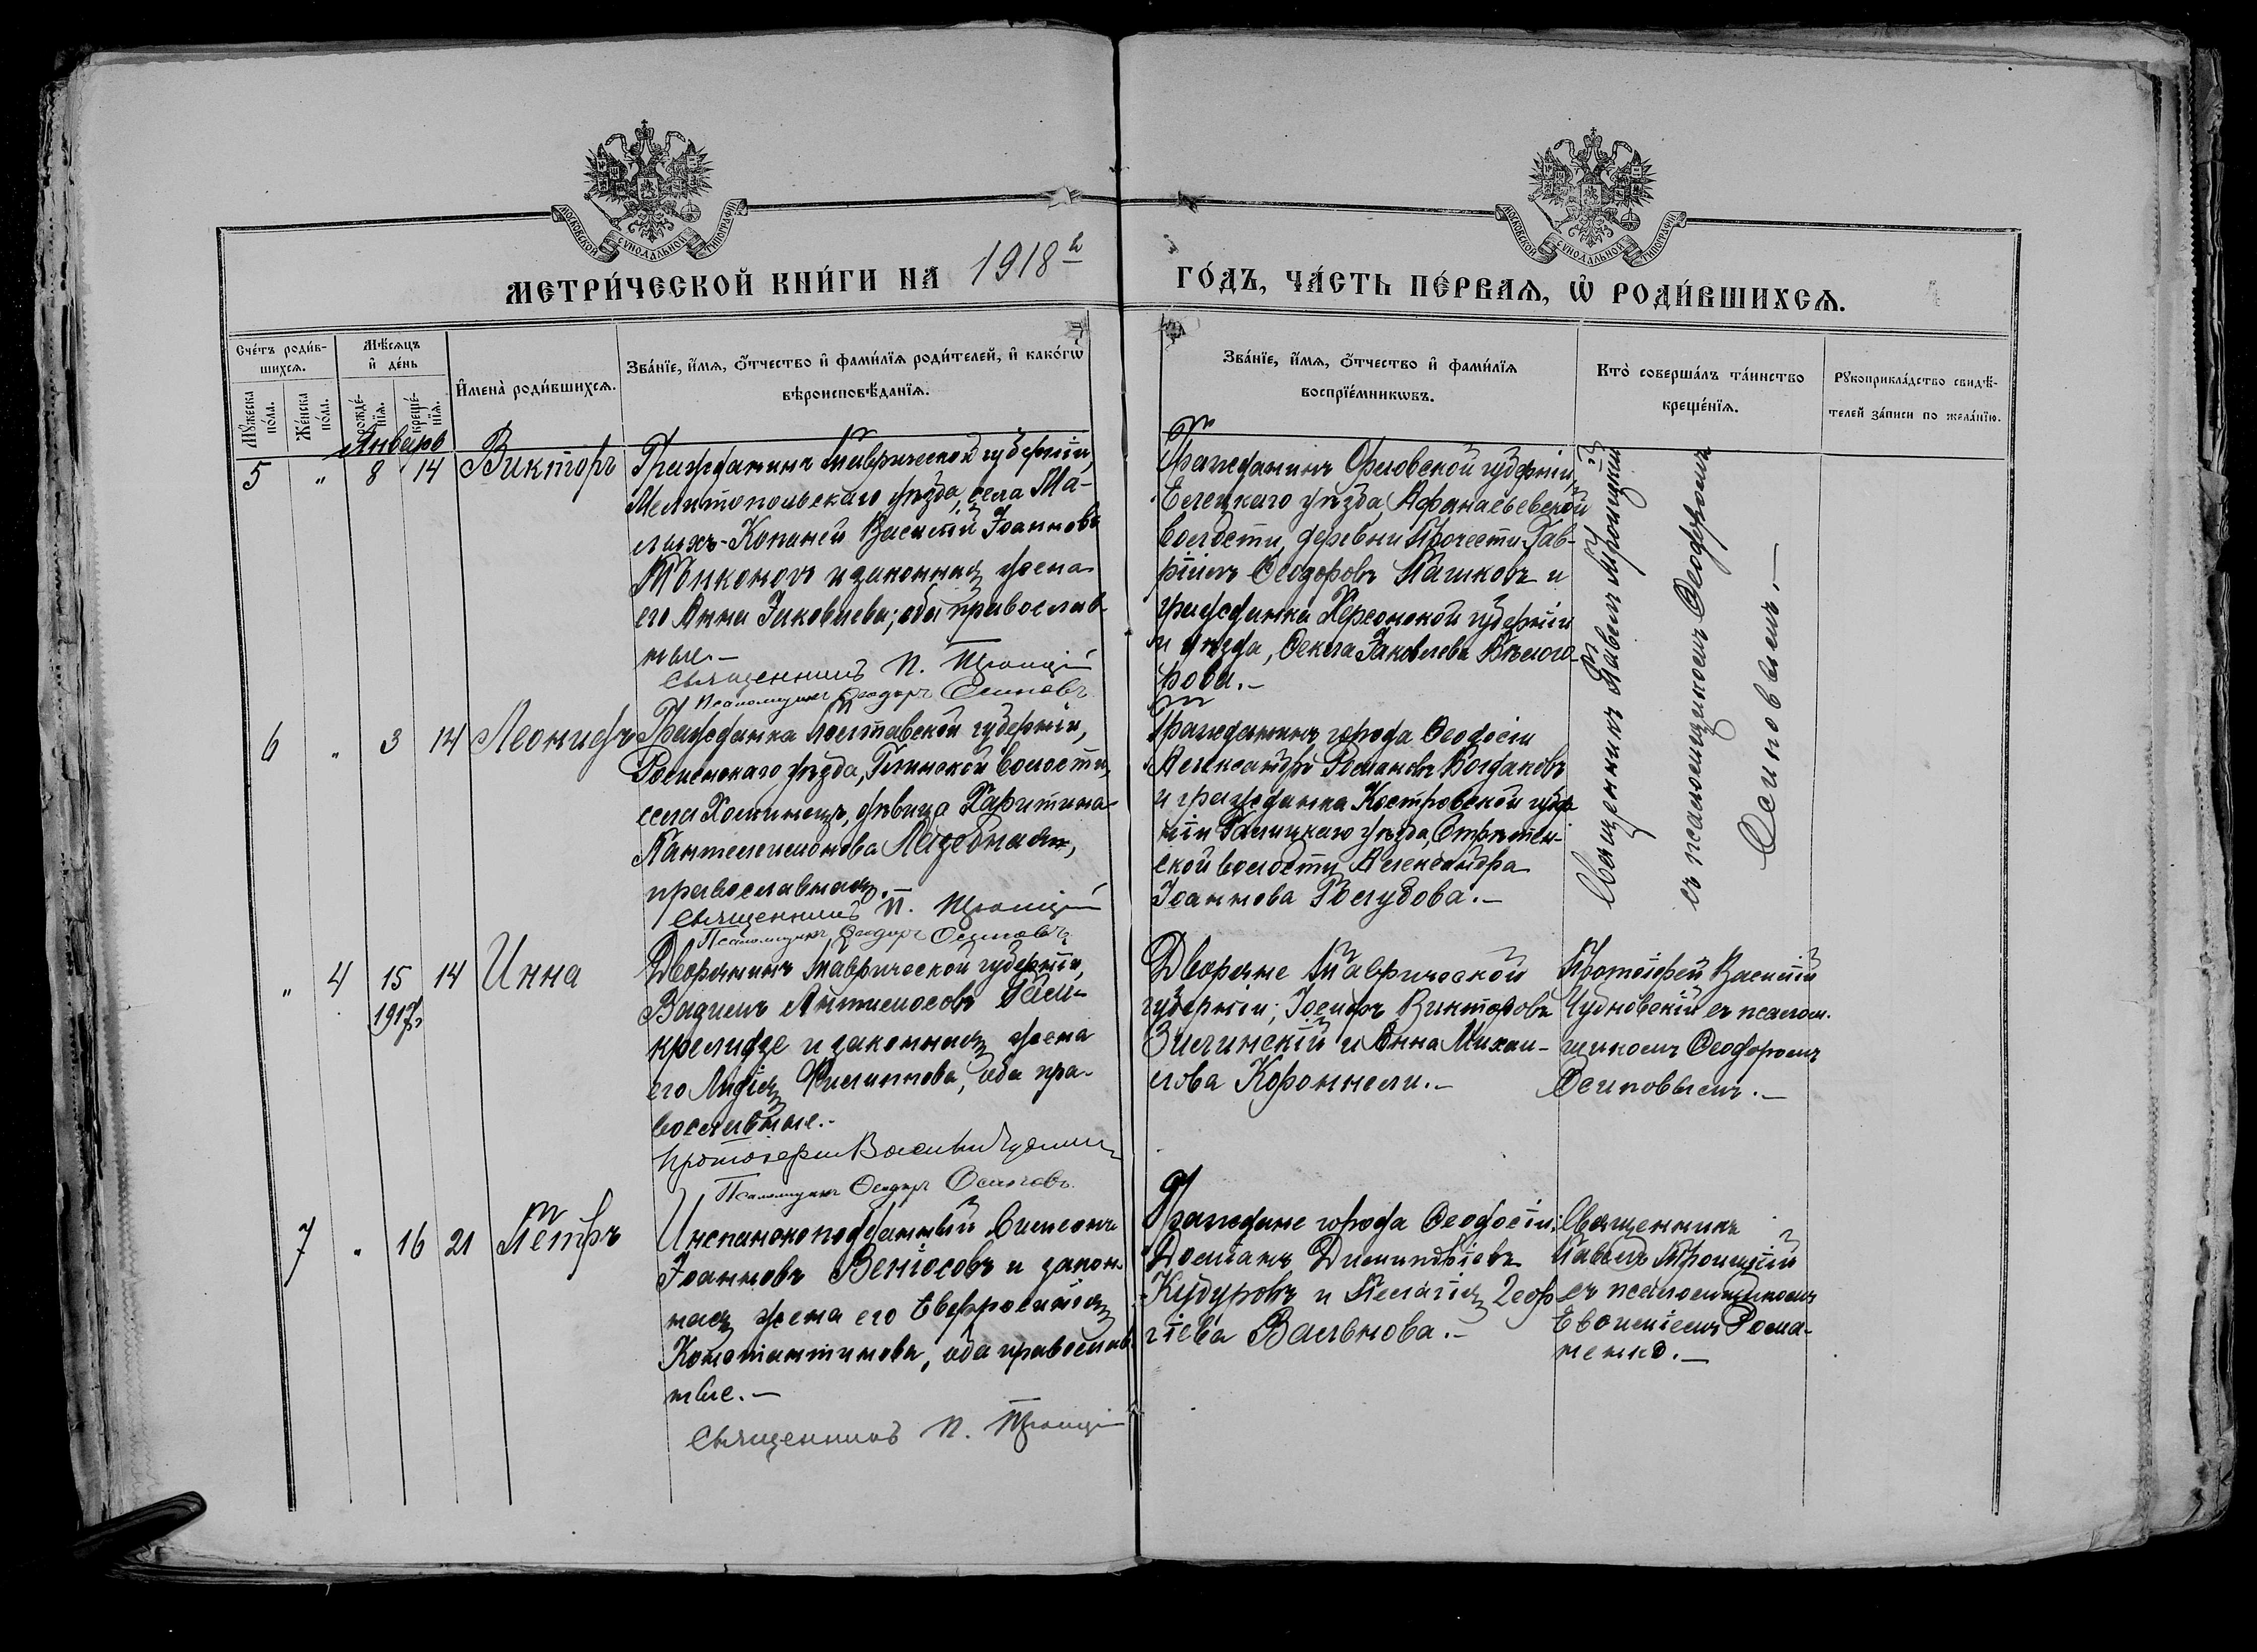 МОСКОВСКОЙ СѴНОДАЛЬНОЙ ТИПОГРАФІИ
МОСКОВСКОЙ СѴНОДАЛЬНОЙ ТИПОГРАФІИ
МЕТРИ́ЧЕСКОЙ КНИ́ГИ НА 1918й ГО́ДЪ, ЧА́СТЬ ПЕ́РВАѦ, Ѡ РОДИ́ВШИХСѦ.
Сче́тъ роди́в-
шихсѧ.
Мꙋ́жеска по́ла.
Же́нска по́ла.
Мѣ́сѧцъ
и҆ де́нь
рожде́-
нїѧ.
креще́-
нїѧ.
И҆мена̀ роди́вшихсѧ.
Зва́нїе, и҆́мѧ, ѻ҆́тчество и҆ фами́лїѧ роди́телей, и҆ како́гѡ
вѣроисповѣ́данїѧ.
Зва́нїе, и҆́мѧ, ѻ҆́тчество и҆ фами́лїѧ
воспрїе́мникѡвъ.
Кто̀ соверша́лъ та́инство
креще́нїѧ.
Рꙋкоприкла́дство свидѣ́-
телей за́писи по жела́нїю.
Январь
5 " 8 14 Викторъ
Гражданинъ Таврической губерніи,
Мелитопольскаго уѣзда, села Ма-
лыхъ-Копаней Василій Іоанновъ
и законная жена
его Анна Іаковлева; оба православ-
ные.-
Священникъ П. Троицкій
Псаломщикъ Ѳеодоръ Осиповъ
Гражданинъ Орловской губерніи,
Елецкаго уѣзда, Афанасьевской
волости, деревни Гав-
ріилъ Ѳеодоровъ Пашковъ и
гражданка Херсонской губерніи
и уѣзда, Ѳекла Іаковлева Бѣлого-
рова.-
Священникъ Павелъ Троицкій
съ псаломщикомъ Ѳеодоромъ
Осиповымъ.-
6 " 3 14 Леонидъ
Гражданка Полтавской губерніи,
Роменскаго уѣзда, Глинской волости,
села дѣвица Харитина
Пантелеимонова
православная.-
Священникъ П. Троицкій
Псаломщикъ Ѳеодоръ Осиповъ
Гражданинъ города Ѳеодосіи
Александръ Романовъ
и гражданка Костромской губер-
ніи Галицкаго уѣзда, Стрѣтен-
ской волости, Александра
Іоаннова Голубова.-
" 4 15 14 Инна
1917г.
Дворянинъ Таврической губерніи,
Вадимъ
и законная жена
его Лидія Филиппова, оба пра-
вославные.-
Протоіерей Василій
Псаломщикъ Ѳеодоръ Осиповъ
Дворяне Таврической
губерніи, Іосифъ Викторовъ
Зилинскій и Анна Михаи-
лова Коронелли.-
Протоіерей Василій
Чудновскій съ псалом-
щикомъ Ѳеодоромъ
Осиповымъ.-
7 " 16 21 Петръ
Испанскоподданный Симеонъ
Іоанновъ Веніосовъ и закон-
ная жена его Евфросинія
Константинова, оба православ-
ные.-
Священникъ П. Троицкій
Граждане города Ѳеодосіи:
Даміанъ Димитріевъ
Кундуровъ и Пелагія Геор-
гіева Вальнова.-
Священникъ
Павелъ Троицкій
съ псаломщикомъ
Евѳиміемъ Рома-
ненко.-